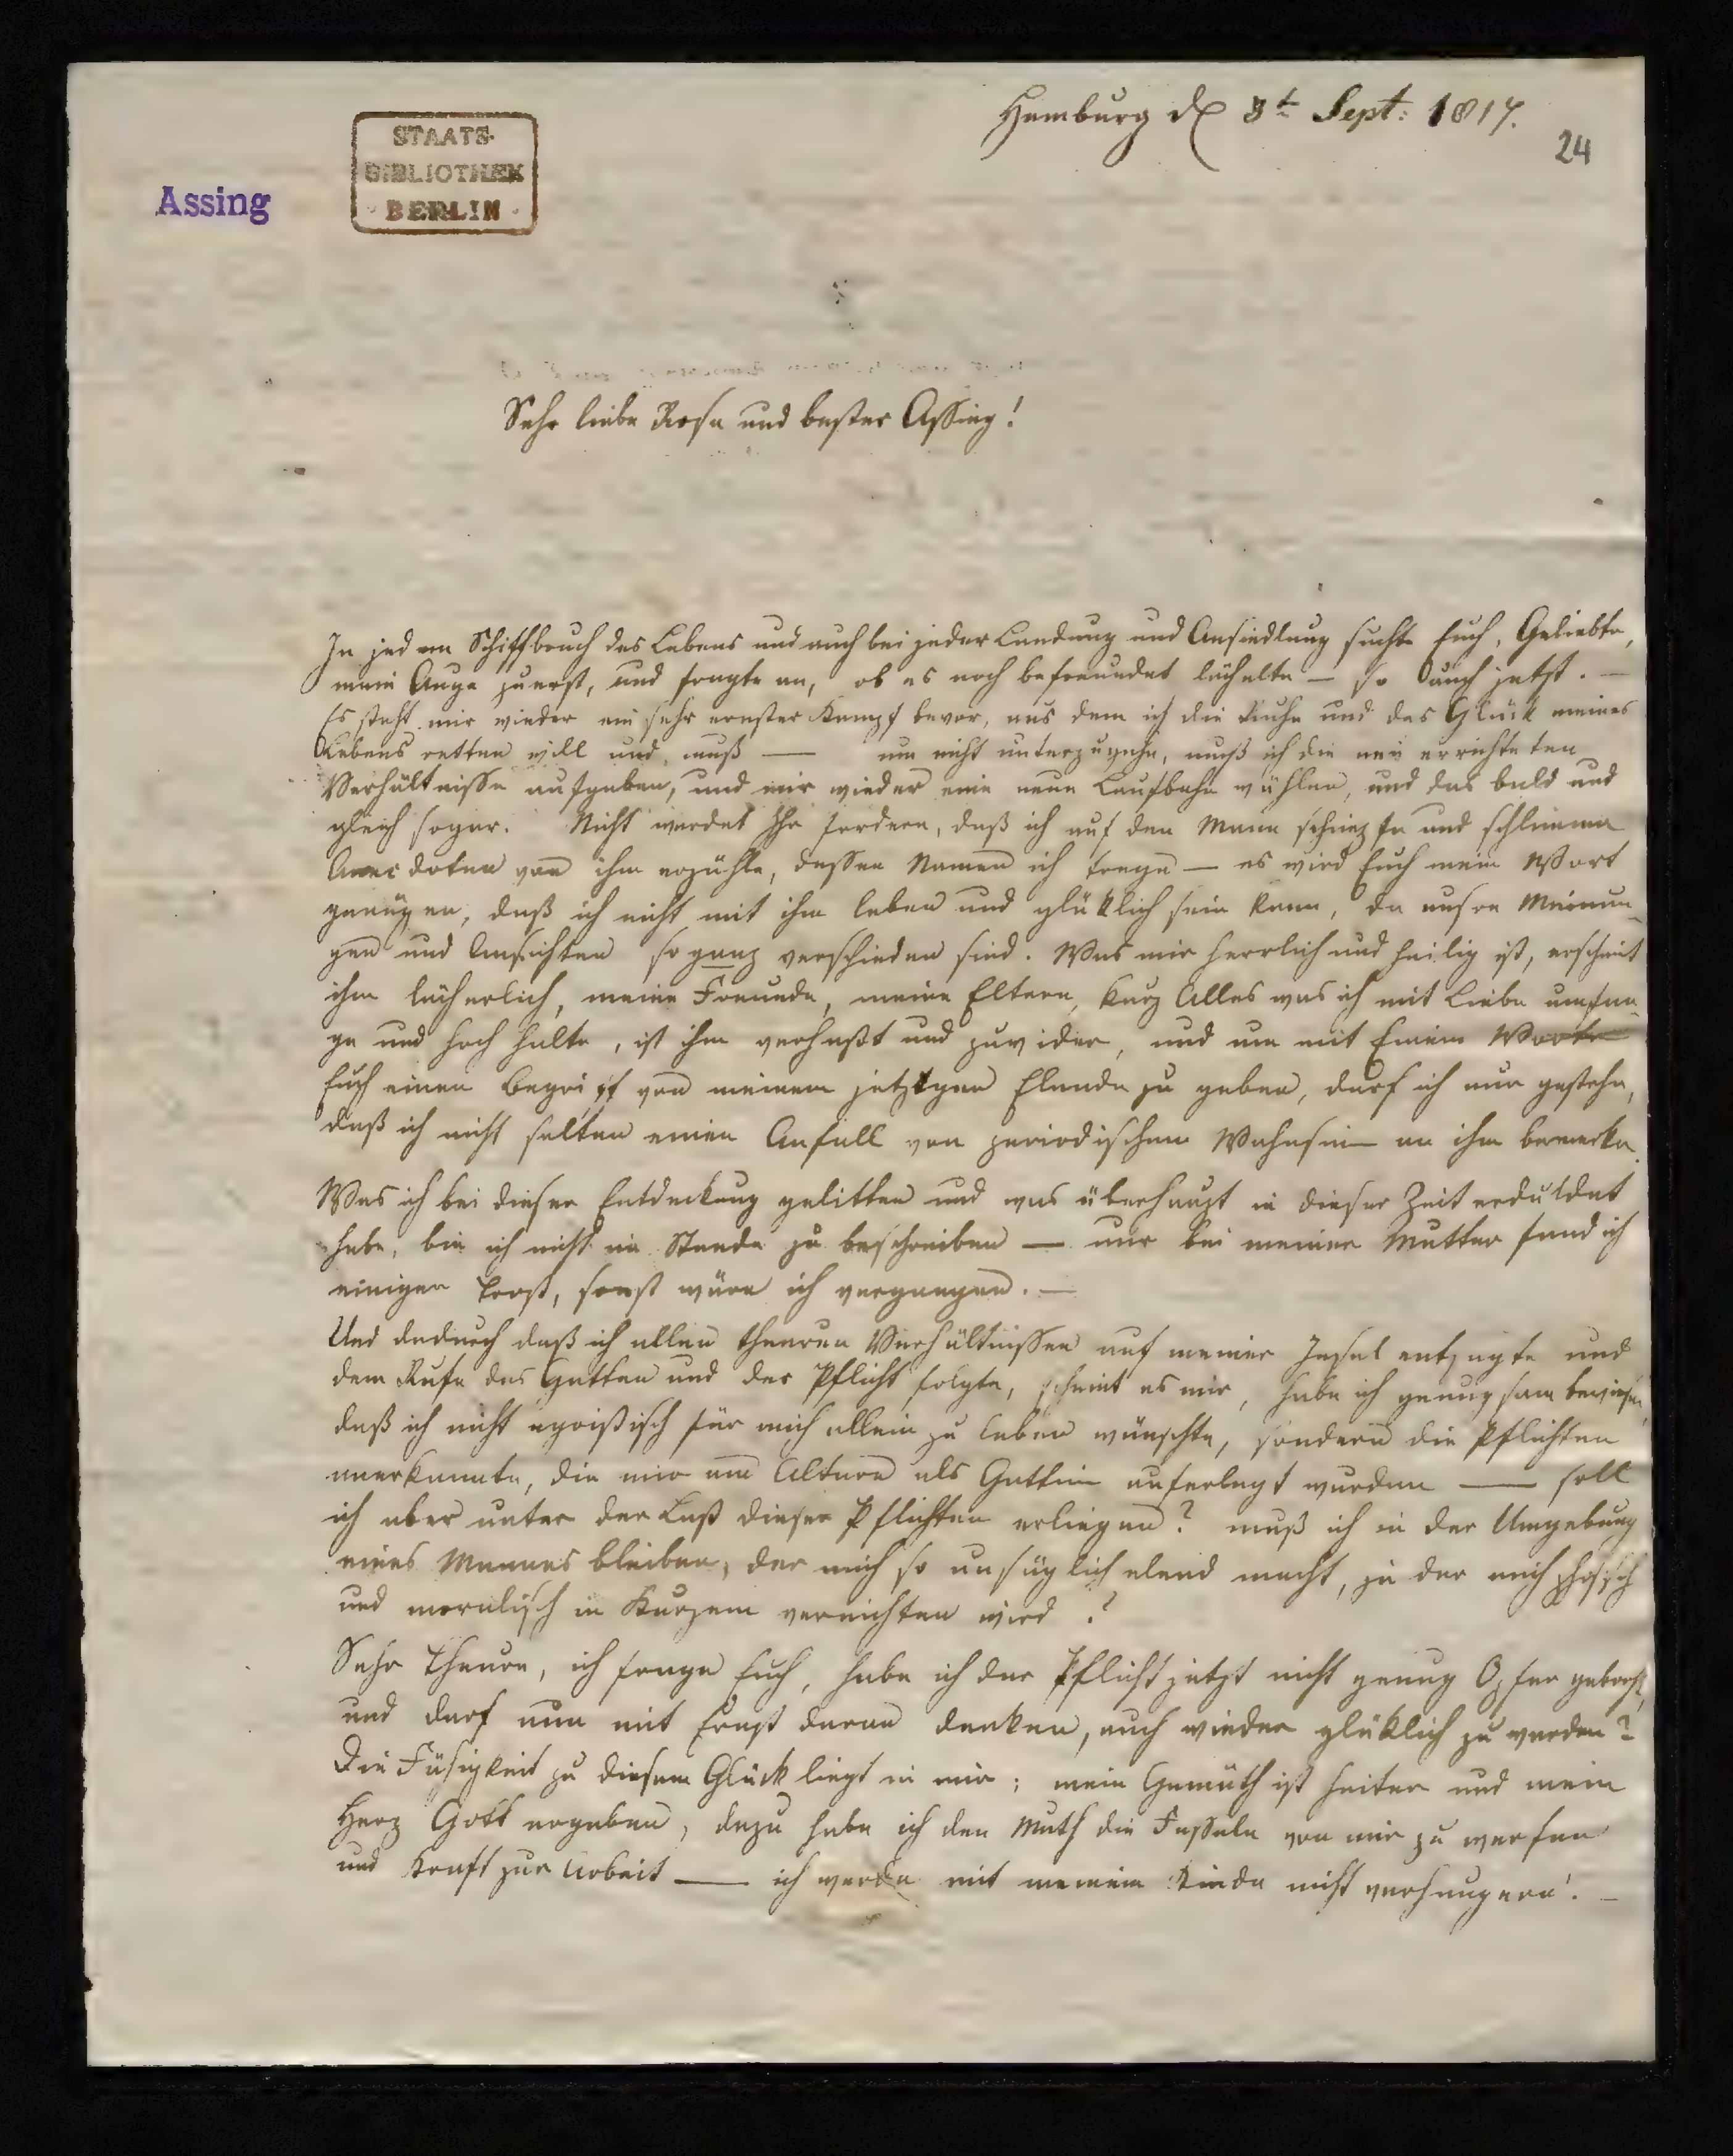 Hamburg d 8t Sept: 1817.
24
STAATS-
BIBLIOTHEK
BERLIN
Assing
Sehr liebe Rosa und bester Assing!
In jedem Schiffbruch des Lebens und auch bei jeder Landung und Ansiedlung suchte Euch, Geliebte,
mein Auge zuerst, und fragte an, ob es noch befreundet lächelte — so auch jetzt. —
Es steht mir wieder ein sehr ernster Kampf bevor, aus dem ich die Ruhe und das Glück meines
Lebens retten will und muß — um nicht unterzugehn, muß ich die neu errichteten
Verhältnisse aufgeben, und mir wieder eine neue Laufbahn wählen, und das bald und
gleich sogar. Nicht werdet Ihr fordern, daß ich auf den Mann schimpfe und schlimme
Anecdoten von ihm erzähle, dessen Namen ich trage — es wird Euch mein Wort
genügen, daß ich nicht mit ihm leben und glüklich sein kann, da unsre Meinun-
gen und Ansichten so ganz verschieden sind. Was mir herrlich und heilig ist, erscheint
ihm lächerlich, meine Freunde, meine Eltern, kurz Alles was ich mit Liebe umfan-
ge und hoch halte, ist ihm verhaßt und zuwider, und um mit Einem Worte
Euch einen Begriff von meinem jetzigen Elende zu geben, darf ich nur gestehn,
daß ich nicht selten einen Anfall von periodischem Wahnsinn an ihm bemerke.
Was ich bei dieser Entdeckung gelitten und was überhaupt in dieser Zeit erduldet
habe, bin ich nicht im Stande zu beschreiben — nur bei meiner Mutter fand ich
einigen Trost, sonst wäre ich vergangen. —
Und dadurch daß ich allen theuren Verhältnissen auf meiner Insel entsagte und
dem Rufe des Gatten und der Pflicht folgte, scheint es mir, habe ich genugsam bewiesen,
daß ich nicht egoistisch für mich allein zu leben wünschte, sondern die Pflichten
anerkannte, die mir am Altare als Gattin auferlegt wurden — soll
ich aber unter der Last dieser Pflichten erliegen? muß ich in der Umgebung
eines Mannes bleiben, der mich so unsäglich elend macht, ja der mich phisisch
und moralisch in Kurzem vernichten wird?
Sehr Theure, ich frage Euch, habe ich der Pflicht jetzt nicht genug Opfer gebracht,
und darf nun mit Ernst daran denken, auch wieder glüklich zu werden?
Die Fähigkeit zu diesem Glück liegt in mir; mein Gemüth ist heiter und mein
Herz Gott ergeben, dazu habe ich den Muth die Fesseln von mir zu werfen
und Kraft zur Arbeit — ich werde mit meinem Kinde nicht verhungern! —